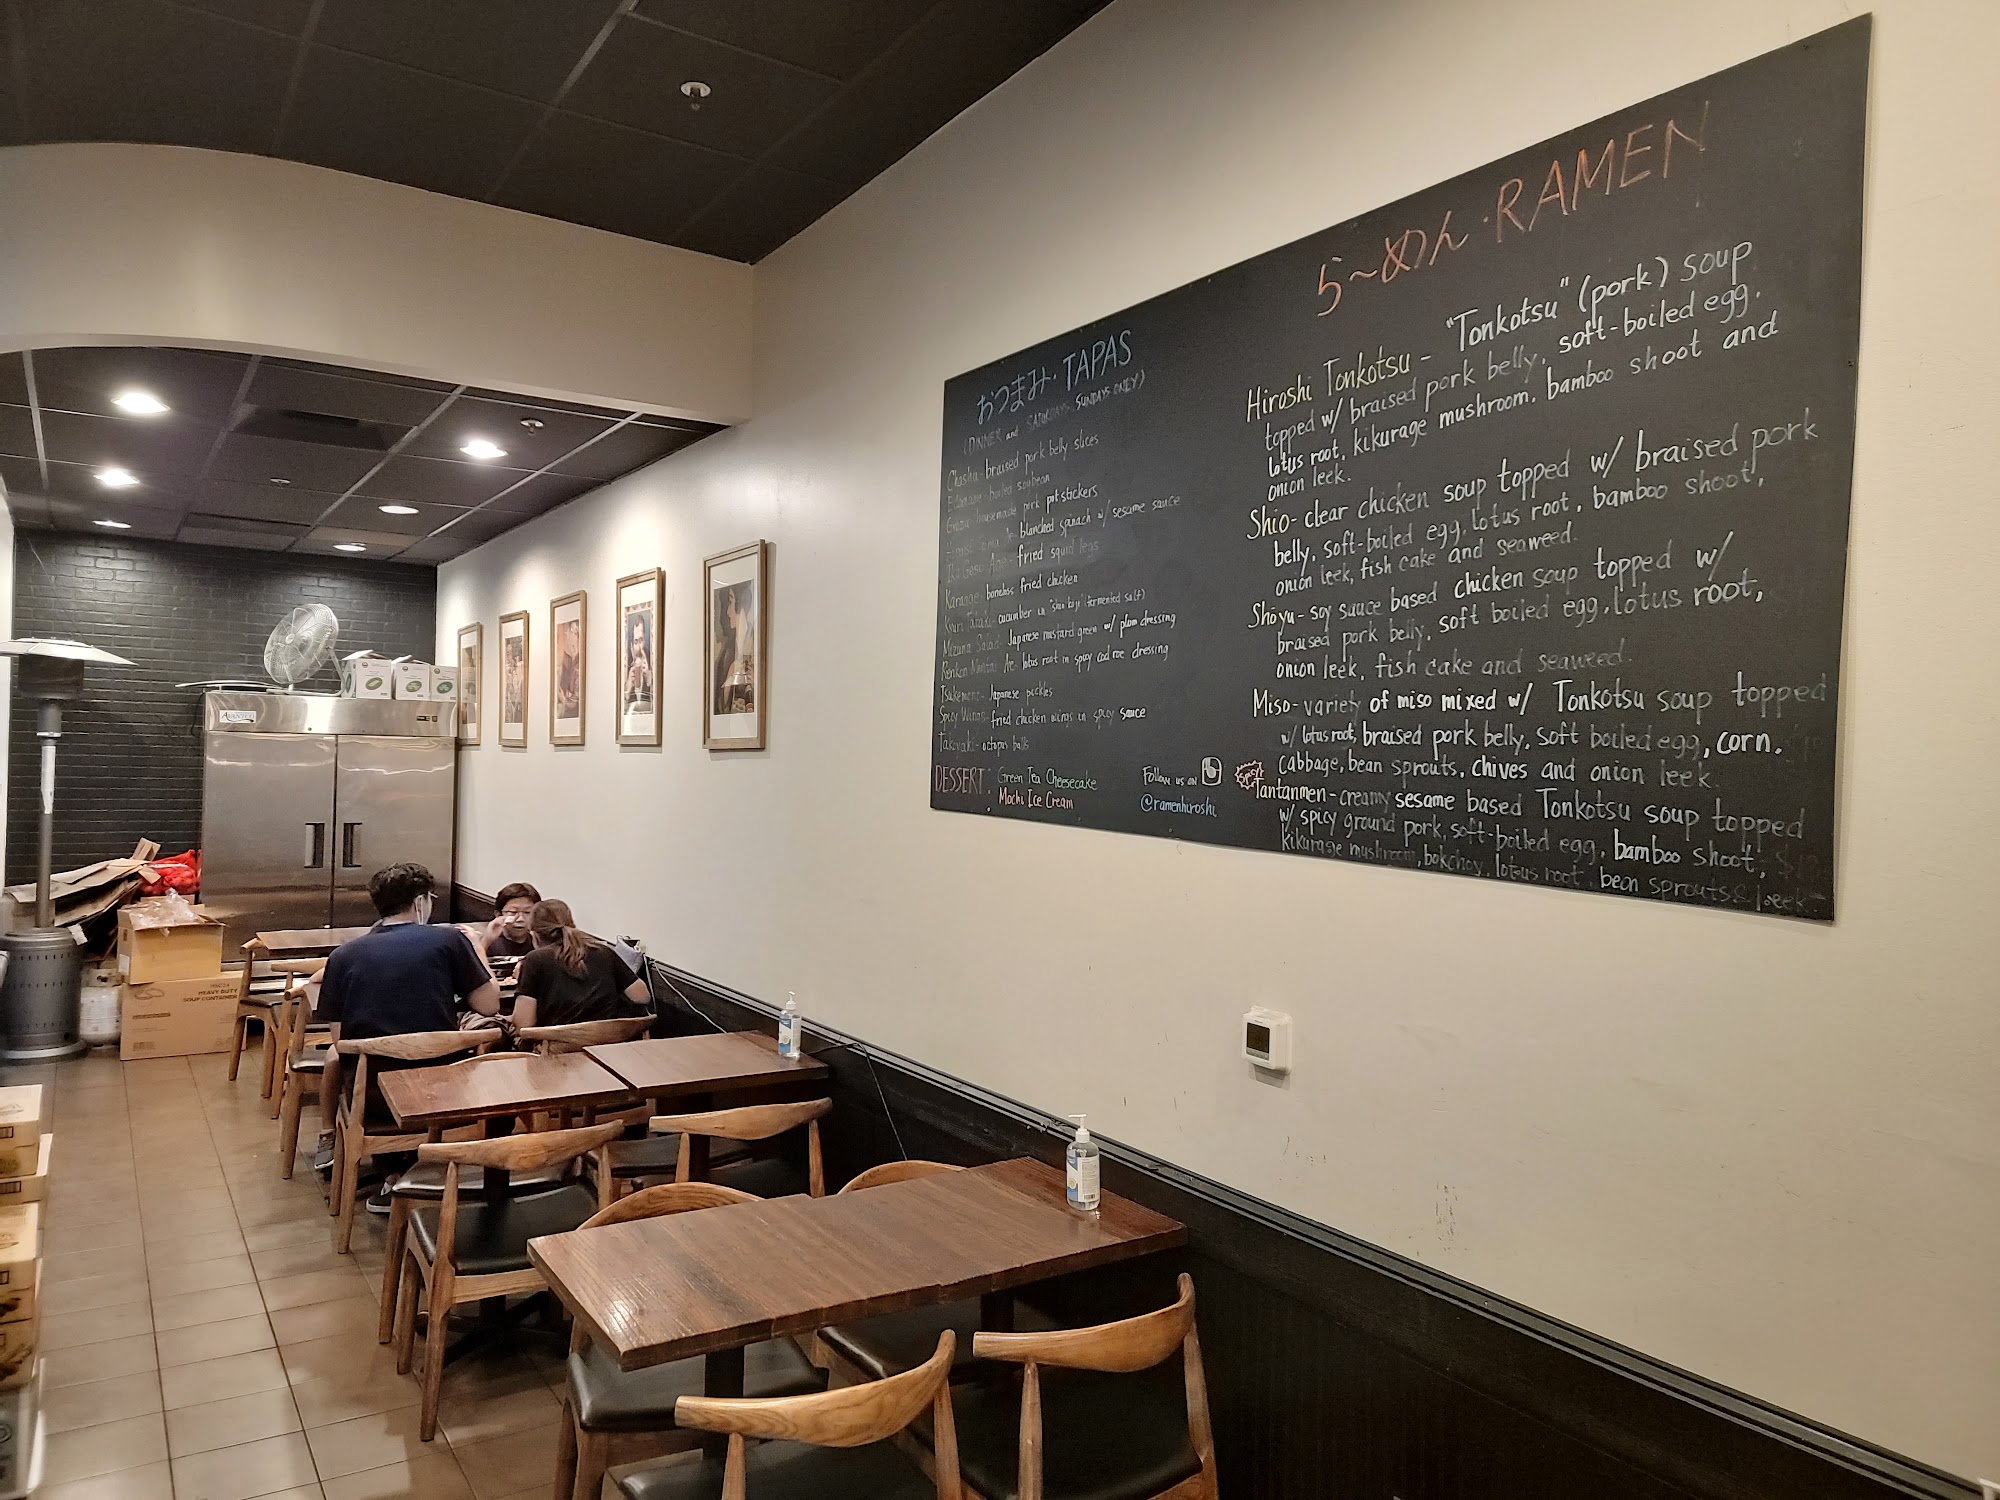 おつまみ・TAPAS
(DINNER and SATURDAYS SUNDAYS ONLY)
Chashu - braised pork belly slices
Edamame - boiled soybean
Gyoza - housemade pork potstickers
blanched spinach w/ sesame sauce
Ika Geso Age - fried squid legs
Karaage - boneless fried chicken
Kyuri Tataki - cucumber in "shio koji" (fermented salt)
Mizuna Salad - Japanese mustard green w/ plum dressing
Renkon Mentai Ae - lotus root in spicy cod roe dressing
Tsukemono - Japanese pickles
Spicy Wings - fried chicken wings in spicy sauce
Takoyaki - octopus balls
DESSERT: Green Tea Cheesecake
Mochi Ice Cream
Follow us on
@ramenhiroshi
ら〜めん・RAMEN
Hiroshi Tonkotsu - "Tonkotsu" (pork) soup
topped w/ braised pork belly, soft-boiled egg.
lotus root, kikurage mushroom, bamboo shoot and
onion leek.
Shio - clear chicken soup topped w/ braised pork
belly, soft-boiled egg, lotus root, bamboo shoot,
onion leek, fish cake and seaweed.
Shoyu - soy sauce based chicken soup topped w/
braised pork belly, soft boiled egg, lotus root,
onion leek, fish cake and seaweed.
Miso - variety of miso mixed w/ Tonkotsu soup topped
w/ lotus root, braised pork belly, soft boiled egg, corn.
cabbage, bean sprouts, chives and onion leek.
Spicy!
Tantanmen - creamy sesame based Tonkotsu soup topped
w/ spicy ground pork, soft-boiled egg, bamboo shoot,
kikurage mushroom, bokchoy, lotus root, bean sprouts & leek.
AVANTCO
HEAVY DUTY
SOUP CONTAINER